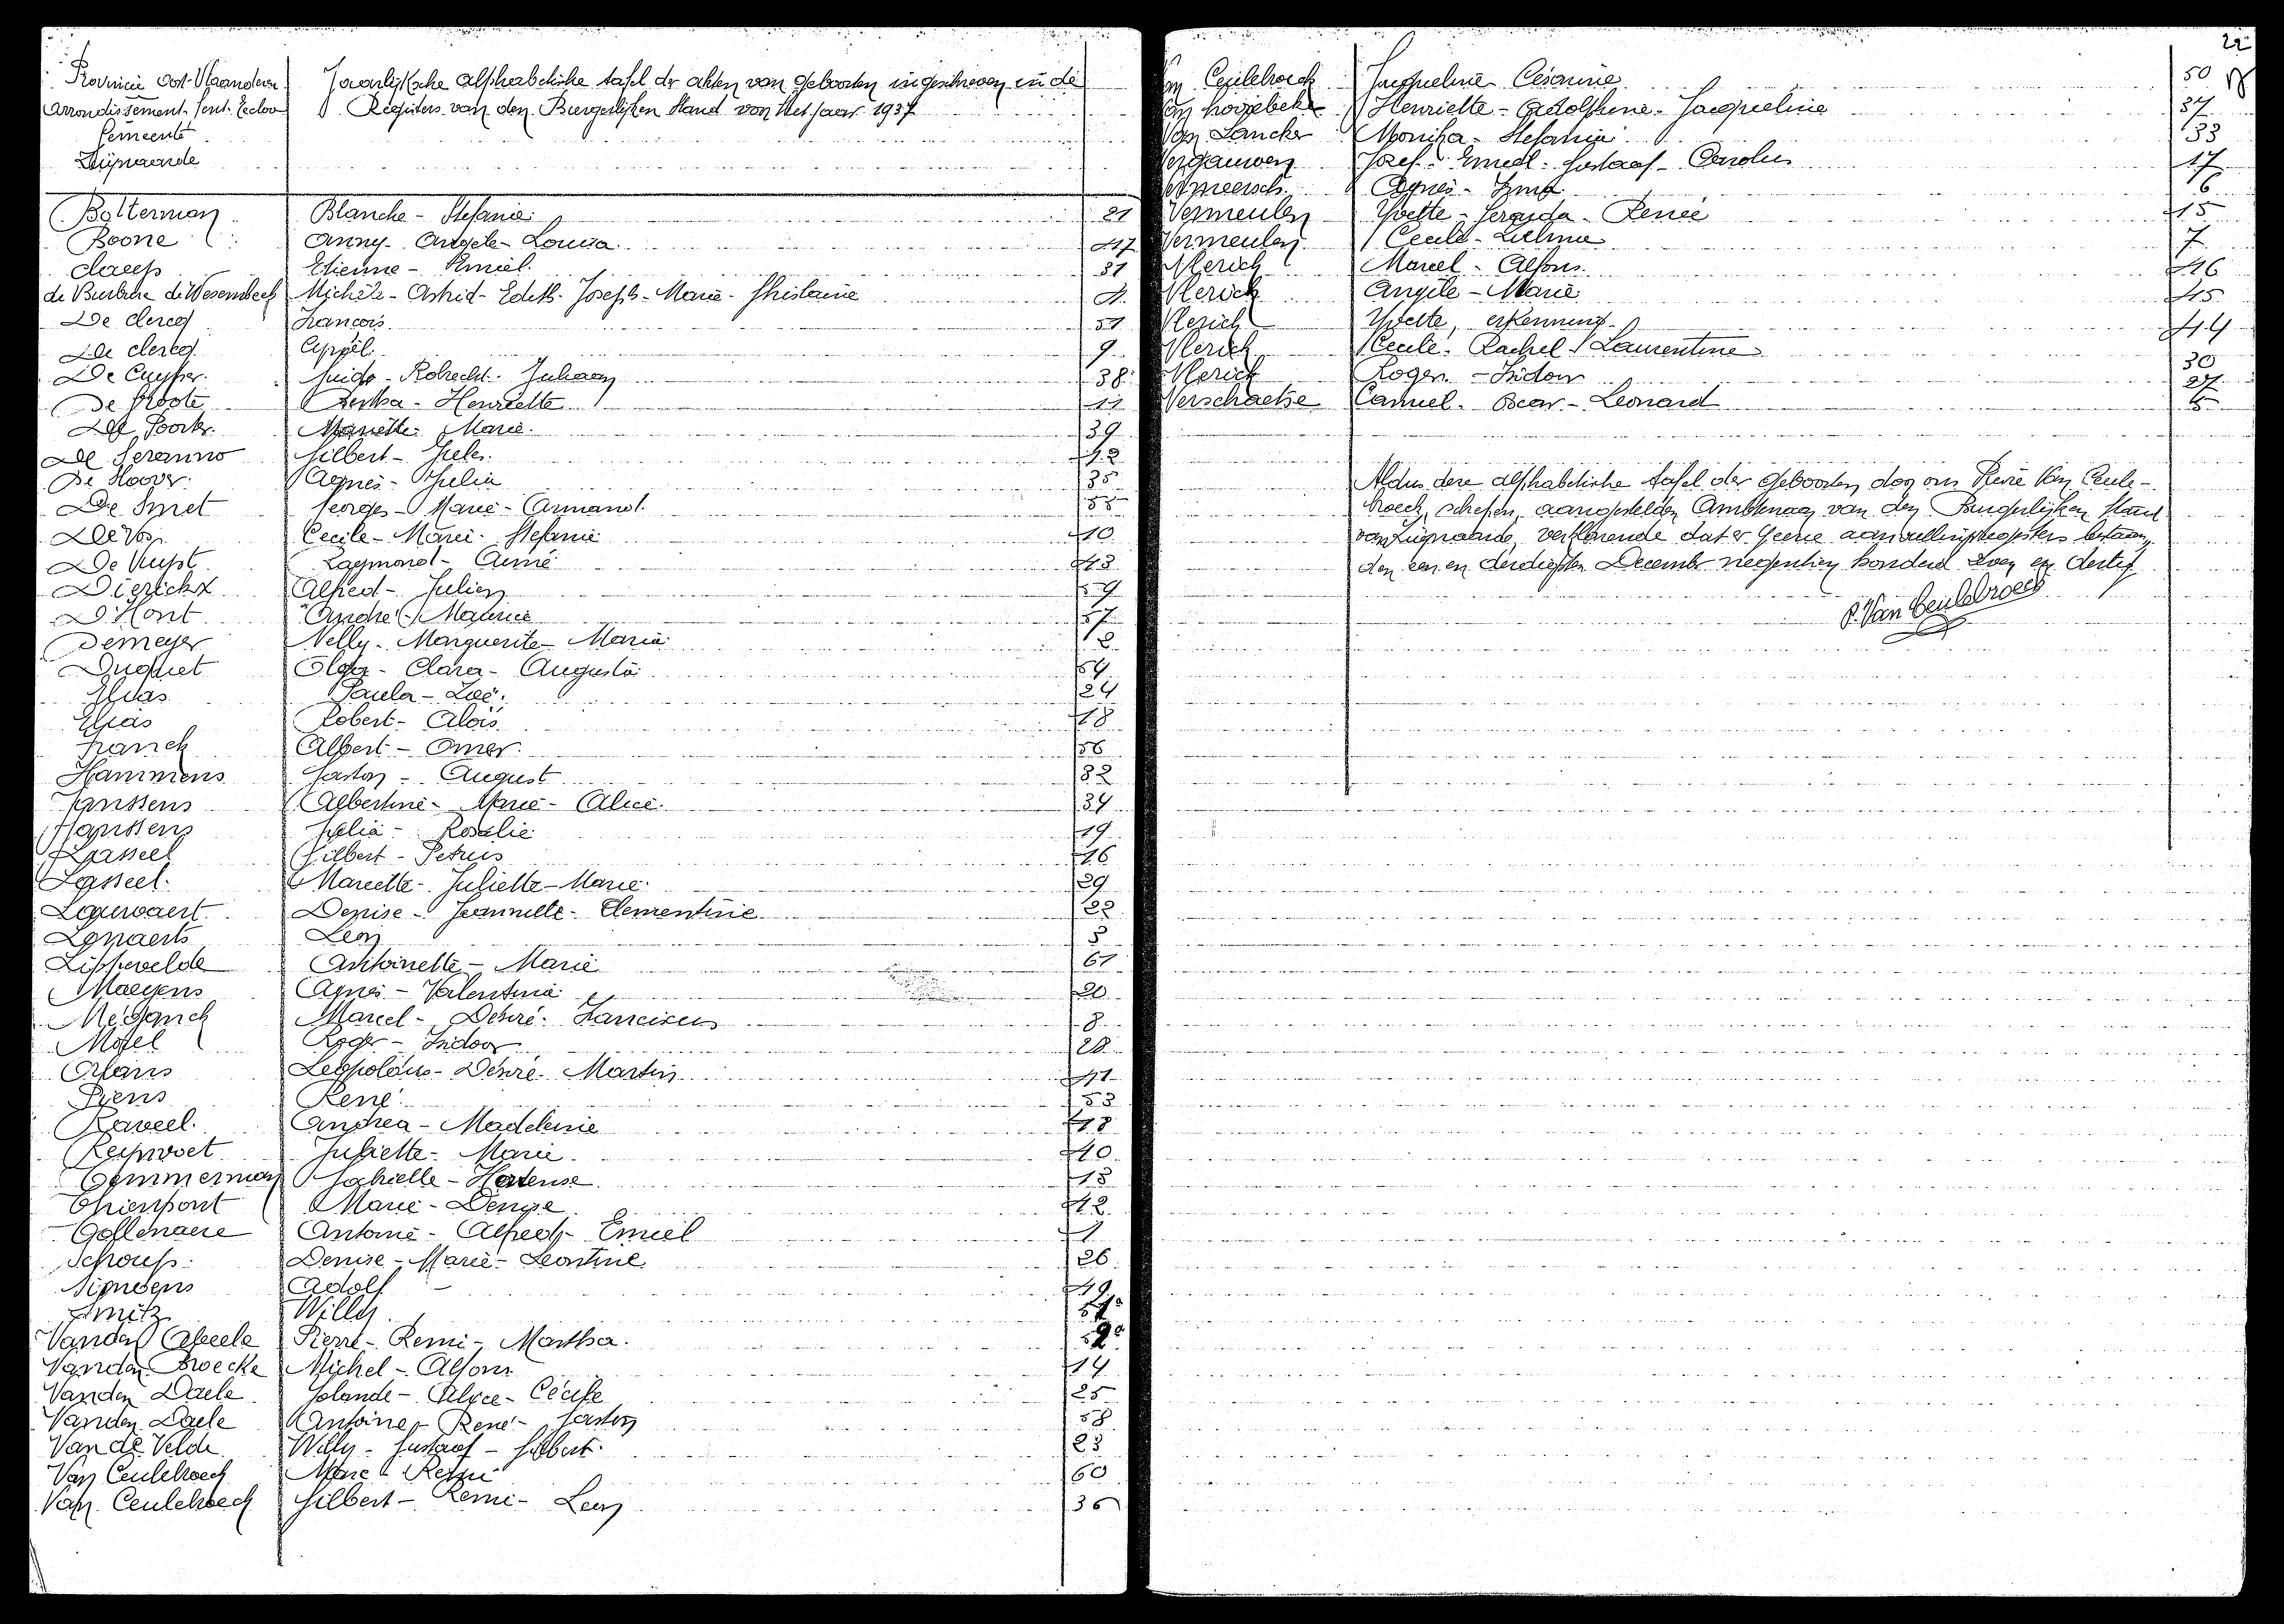 Provincie Oost-Vlaanderen
Arrondissement Gent-Eecloo
Gemeente
Zwijnaarde
Jaarlijksche alphabetische tafel der akten van geboorten ingeschreven in de
Registers van den Burgerlijken Stand van het jaar 1937
Balterman Blanche - Stefanie 21
Boone Anny - Angele - Louisa 47
claeys Etienne - Emiel 31
de Burbure de Wesembeek Michèle - Astrid - Edith - Joseph - Marie - Ghislaine 4
De clercq Francois 51
De clercq 9
De Cuyper Guido - Robrecht - Juliaan 38
De Groote Bertha - Henriette 11
De Poorter Mariette - Marie 39
De Seranno Gilbert 42
De Hoover Agnes - Julia 35
De Smet Georges - Marie - Armand 55
De Vos Cecile - Marie - Stefanie 10
De Vuyst Raymond - Aimé 43
Dierickx Alfred - Julien 59
D'Hont André - Maurice 57
Demeyer Nelly - Marguerite - Maria 2
Duquet Olga - Clara - Augusta 54
Elias Paula - Zoë 24
Elias Robert - Aloïs 18
Franck Albert - Omer 56
Hammens Gaston - August 32
Janssens Albertine - Marie - Alice 34
Janssens Julia - Rosalie 19
Lasseel Gilbert - Petrus 16
Lasseel Mariette - Juliette - Marie 29
Lauwaert Denise - Jeannette - Clementine 22
Lenaerts Leon 3
Lippevelde Antoinette - Marie 61
Maeyens Agnes - Valentina 20
Meganck Marcel - Désiré - Franciscus 8
Motel Roger - Isidoor 28
Orlans Leopoldus - Désiré - Martin 41
Piens René 53
Raveel Andrea - Madeleine 48
Reynvoet Juliette - Marie 40
Temmerman Gabrielle - Hortense 13
Thienpont Marie - Denise 12
Gollenaere Antoine - Alfred - Emiel 1
Schoups Denise - Marie - Leontine 26
Simoens Adolf 49
Smitz Willy
Vanden Abeele Pierre - Remi - Martha
Vanden Broecke Michel - Alfons 14
Vanden Daele Jolande - Alice - Cécile 25
Vanden Daele Antoine - René - Gaston 58
Van de Velde Willy - Gustaaf - Gilbert 23
Van Ceulebroeck Marie - Remi 60
Van Ceulebroeck Gilbert - Remi - Leon 36
22
Van Ceulebroeck Jacqueline Césarine 50
Van Hoogebeke Henriette - Adolphine - Jacqueline 37
Van Lancker Monika - Stefania 33
Vergauwen Jozef - Emiel - Gustaaf - Carolus 17
Vermeersch Agnes - Irma 6
Vermeulen Yvette - Gerarda - Renée 15
Vermeulen Cecile - Zulma 7
Vlerick Marcel - Alfons 46
Vlerick Angèle - Marie 45
Vlerick Yvette, erkenning 44
Vlerick Cecile - Rachel - Laurentine 30
Vlerick Roger - Isidoor 27
Verschaetse Camiel - Oscar - Leonard 5
Aldus deze alphabetische tafel der geboorten door ons René Van Ceule-
broeck, schepen, aangestelden Ambtenaar van den Burgerlijken Stand
van Zwijnaarde, verklarende dat er geene aanvullingsregisters bestaan,
den een en dertigsten December negentien honderd zeven en dertig
R. Van Ceulebroeck